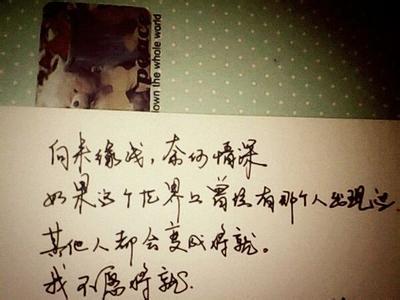 peace
own the whole world
向来缘浅，奈何情深
如果这个世界上曾经有那个人出现过
其他人都会变成将就。
我不愿将就.